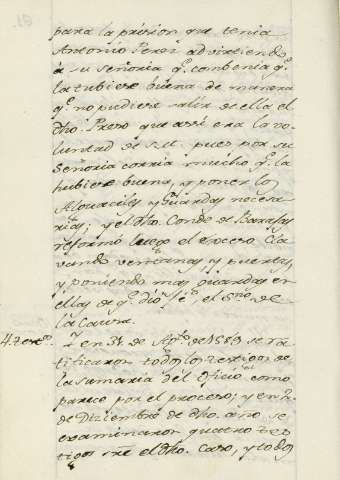 para la prision que tenia
Antonio Perez advirtiendo
à su Señoria q.e combenia q.e
la tubiese buena de manera
q.e no pudiese salir de ella el
dho. Preso que assi era la vo-
luntad de S.M. pues por su
Señoria corria mucho q.e la
hubiese buena, y poner los
Alguaciles y Guardas necesa-
rios; y el dho. Conde de Barajas
reformó luego el cla-
vando ventanas y puertas,
y poniendo mas guardas en
ellas de q.e dio el de
la Causa.
4. en 31. de Ag.to de 1589 se ra-
tificaron todos los testigos de
la sumaria del Oficio como
parece por el proceso; y en
de Diziembre de dho. año se
examinaron quatro tes-
tigos sre. el dho. Caso, y todos